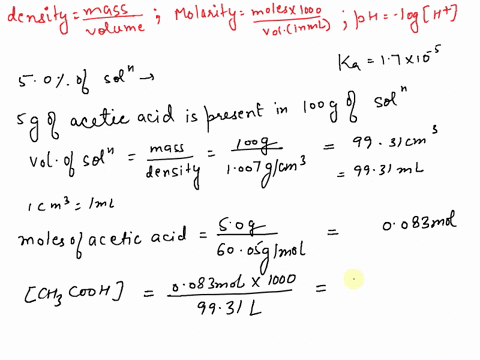 density = mass/volume ; Molarity = moles×1000/vol.(in mL) ; pH = -log[H+]
5.0% of solⁿ →
Ka = 1.7×10⁻⁵
5g of acetic acid is present in 100g of solⁿ
vol. of solⁿ = mass/density = 100g/1.007g/cm³ = 99.31cm³
= 99.31mL
1cm³ = 1mL
moles of acetic acid = 5.0g/60.05g/mol = 0.083mol
[CH₃COOH] = 0.083mol × 1000/99.31L =